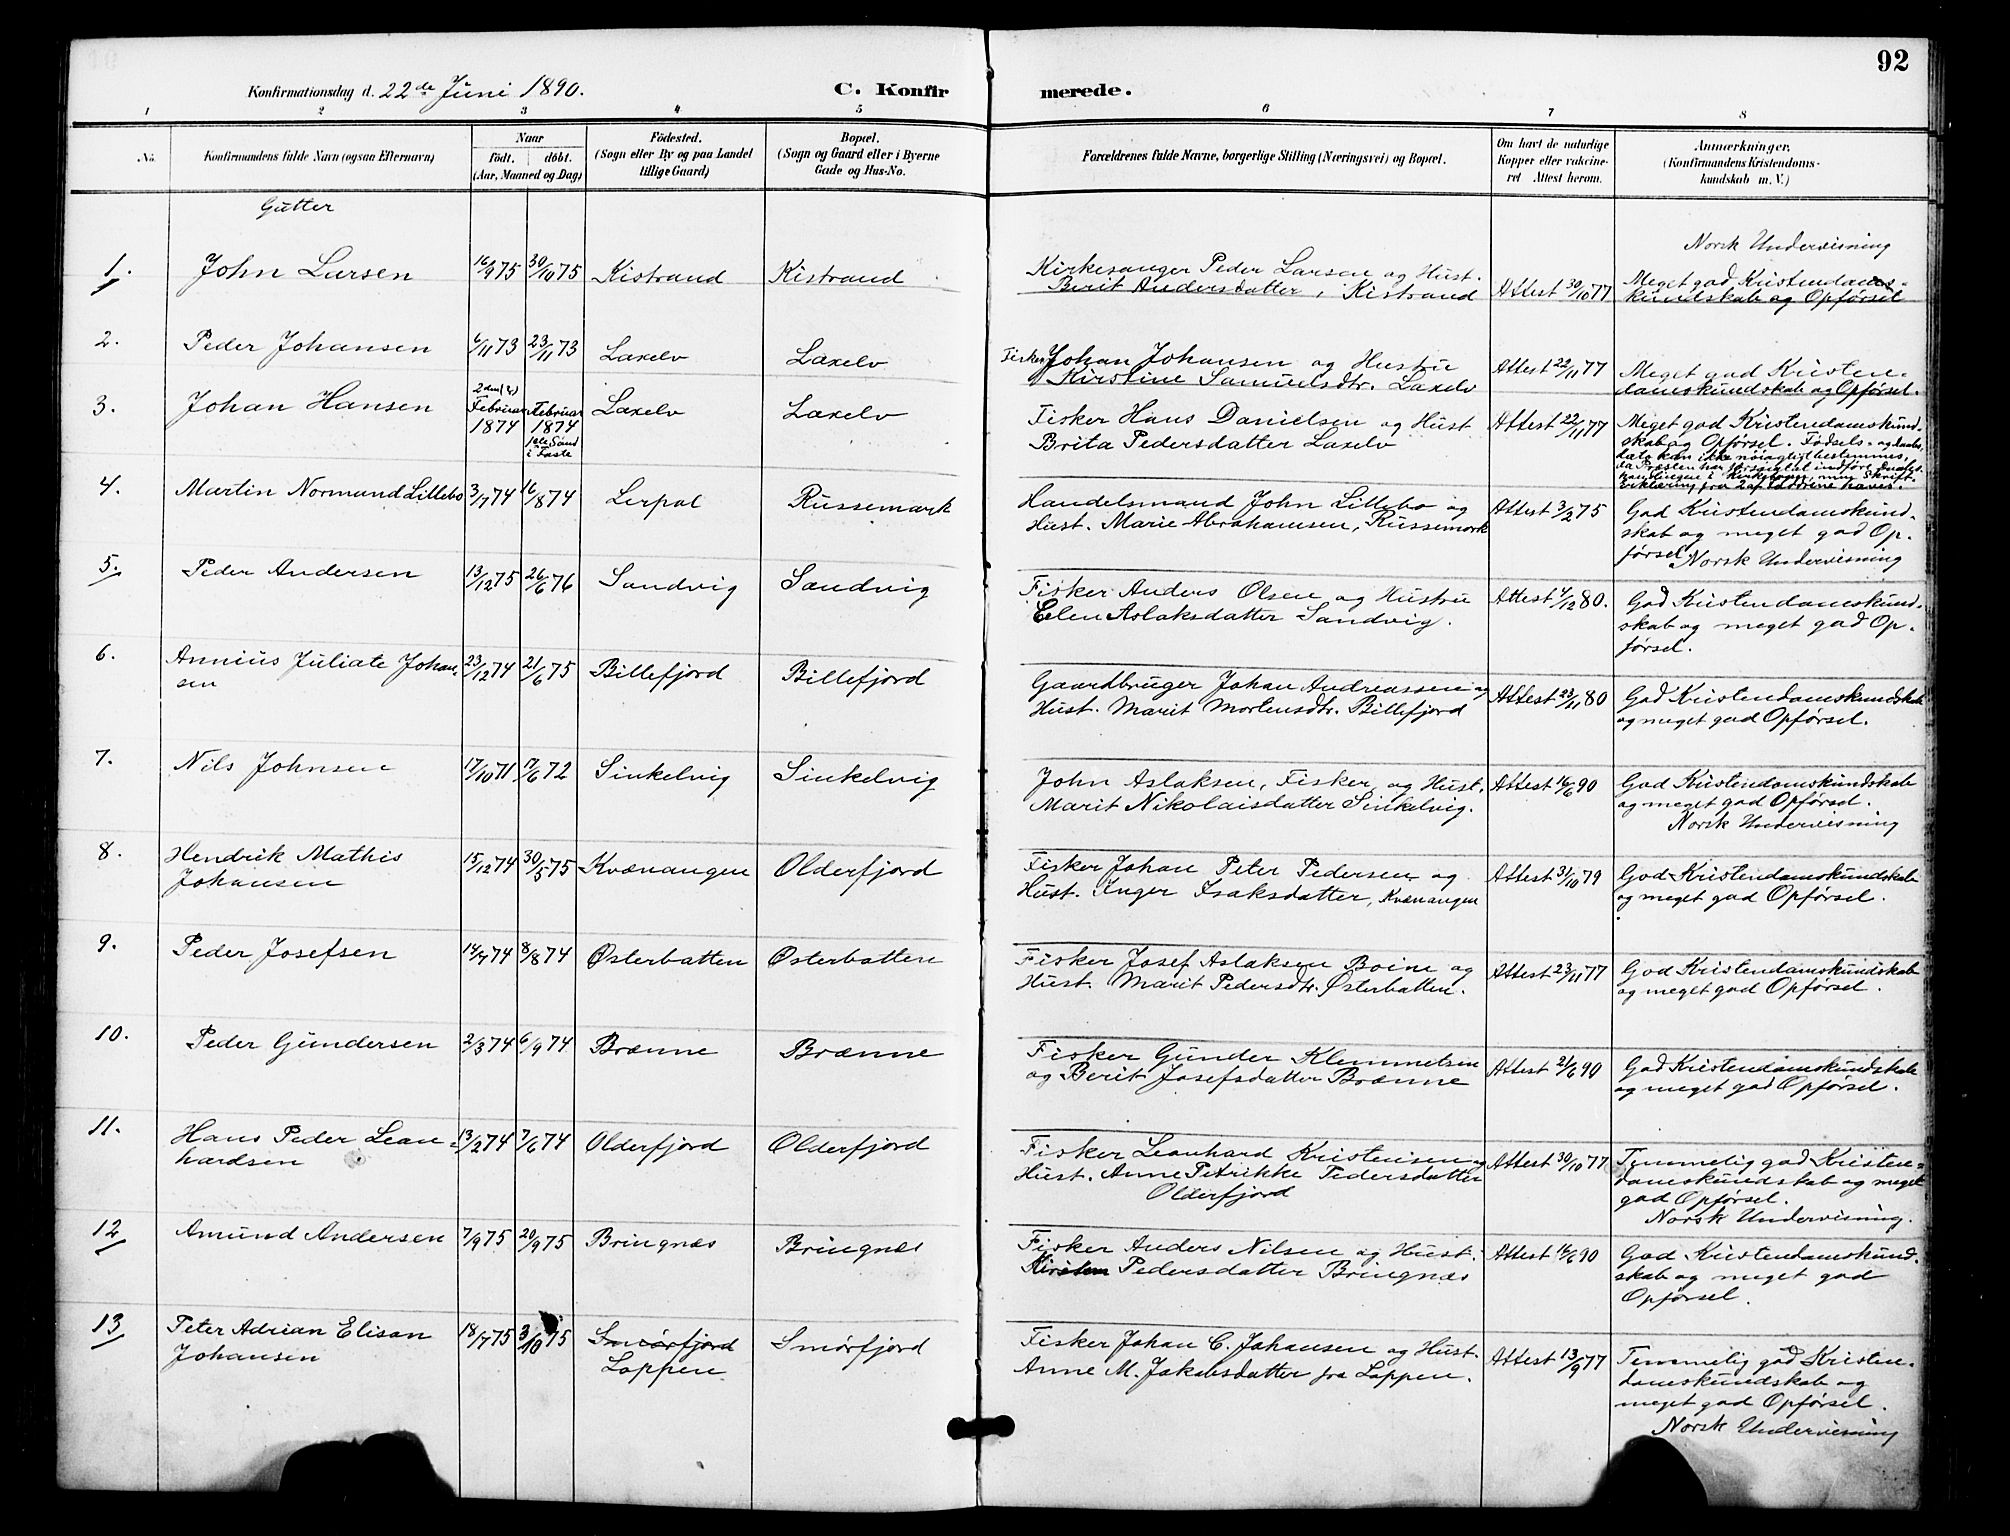 92
Konfirmationsdag d. 22de Juni 1890.
C. Konfirmerede.
1 2 3 4 5 6 7 8
No.
Konfirmandens fulde Navn (ogsaa Efternavn)
Naar
födt. döbt.
(Aar, Maaned og Dag)
Födested.
(Sogn eller By og paa Landet
tillige Gaard)
Bopæl.
(Sogn og Gaard eller i Byerne
Gade og Hus-No.
Forældrenes fulde Navne, borgerlige Stilling (Næringsvei) og Bopæl.
Om havt de naturlige
Kopper eller vakcine-
ret Attest herom.
Anmærkninger.
(Konfirmandens Kristendoms-
kundskab m. V.)
Gutter
1. John Larsen 16/9 75 30/10 75 Kistrand Kistrand
Kirkesanger Peder Larsen og Hust.
Berit Andersdatter, Kistrand
Attest 30/10 77
Norsk Undervisning
Meget god Kristendoms-
kundskab og Opførsel
2. Peder Johansen 6/11 73 23/11 73 Laxelv Laxelv
Fisker Johan Johansen og Hustru
Kirstine Samuelsdtr. Laxelv
Attest 22/11 77
Meget god Kristen-
domskundskab og Opførsel.
3. Johan Hansen
2den (?)
Februar
1874
Februar
1874
1ste Sønd
i Faste
Laxelv Laxelv
Fisker Hans Danielsen og Hust
Brita Pedersdatter Laxelv
Attest 22/11 77
Meget god Kristendomskund-
skab og Opførsel. Fødsels- og Daabs
dato kan ikke nøiagtigt bestemmes,
da Præsten har forsømt at indføre Daabs-
handlingen i Kirkebogen, men Skrift.
Erklæring fra 2 af Faddrene haves.
4. Martin Normand Lillebo 3/7 74 16/8 74 Lerpol Russemark
Handelsmand John Lillebo og
Hust. Marie Abrahamsen, Russemork
Attest 3/2 75
God Kristendomskund-
skab og meget god Op-
førsel.
Norsk Undervisning
5. Peder Andersen 13/12 75 26/6 76 Sandvig Sandvig
Fisker Anders Olsen og Hustru
Elen Aslaksdatter Sandvig.
Attest 4/12 80.
God Kristendomskund-
skab og meget god Op-
førsel.
6. Annius Juliate Johan-
sen
23/12 74 21/6 75 Billefjord Billefjord
Gaardbruger Johan Andreassen og
Hust. Marit Mortensdtr. Billefjord
Attest 23/11 80
God Kristendomskundskab
og meget god Opførsel.
7. Nils Johnsen 17/10 71 17/6 72 Sinkelvig Sinkelvig
John Aslaksen, Fisker og Hust.
Marit Nikolaisdatter Sinkelvig.
Attest 16/6 90
God Kristendomskundskab
og meget god Opførsel.
Norsk Undervisning
8. Hendrik Mathis
Johansen
15/12 74 30/5 75 Kvænangen Olderfjord
Fisker Johan Peter Pedersen og
Hust. Inger Isaksdatter, Kvænangen
Attest 31/10 79
God Kristendomskundskab
og meget god Opførsel.
9. Peder Josefsen 14/7 74 8/8 74 Østerbatten Østerbatten
Fisker Josef Aslaksen Boine og
Hust. Marit Pedersdtr. Østerbatten.
Attest 23/11 77
God Kristendomskundskab
og meget god Opførsel.
10. Peder Gundersen 2/3 74 6/9 74 Brænne Brænne
Fisker Gunder Klemmetsen
og Berit Josefsdatter Brænne
Attest 21/6 90
God Kristendomskundskab
og meget god Opførsel.
11. Hans Peder Leon-
hardsen
13/2 74 7/6 74 Olderfjord Olderfjord
Fisker Leonhard Kristensen og
Hust. Anne Petrikke Pedersdatter
Olderfjord
Attest 30/10 77
Temmelig god Kristen-
domskundskab og meget
god Opførsel.
Norsk Undervisning.
12 Amund Andersen 7/9 75 20/9 75 Bringnæs Bringnæs
Fisker Anders Nilsen og Hust.
Kirsten Pedersdatter Bringnæs
Attest 16/6 90
God Kristendomskund-
skab og meget god
Opførsel.
13 Peter Adrian Elison
Johansen
18/7 75 3/10 75 Smørfjord
Loppen
Smørfjord
Fisker Johan C. Johansen og Hust.
Anne M. Jakobsdatter fra Loppen.
Attest 13/9 77
Temmelig god Kristen-
domskundskab og
meget god Opførsel.
Norsk Undervisning